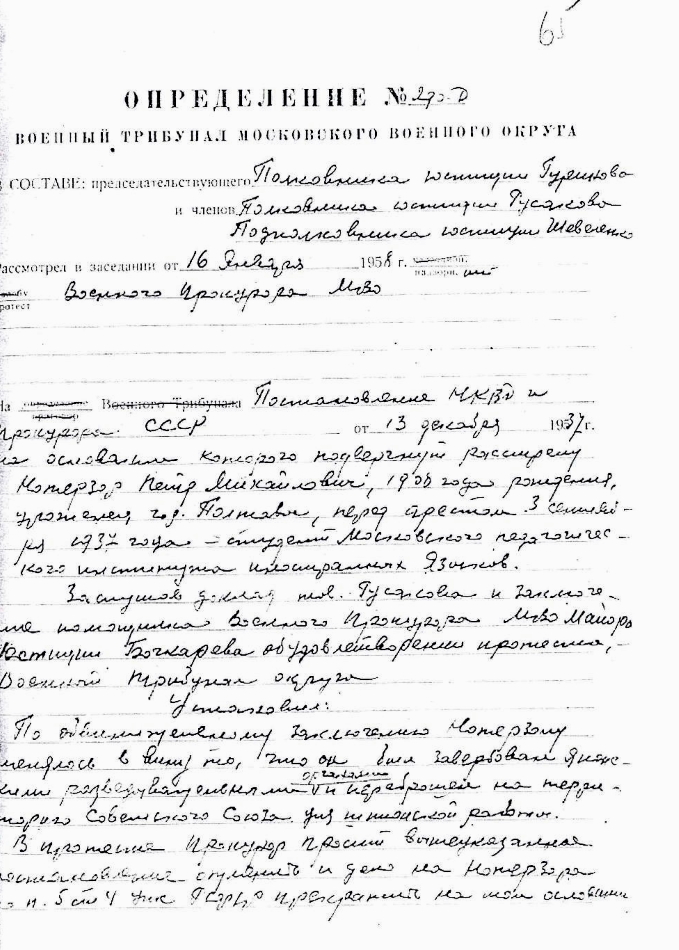 65
ОПРЕДЕЛЕНИЕ №
ВОЕННЫЙ ТРИБУНАЛ МОСКОВСКОГО ВОЕННОГО ОКРУГА
СОСТАВЕ: председательствующего Полковника юстиции Гуринова
и членов Полковника юстиции Гусакова
Подполковника юстиции Шевченко
Рассмотрел в заседании от 16 января 1958 г.
Военного Прокурора МВО
На Военного Трибунала Постановление НКВД и
Прокурора СССР от 13 декабря 1937 г.
на основании которого подвергнут расстрелу
Петр Михайлович, 1908 года рождения,
уроженец гор. Полтавы, перед арестом 3 сентяб-
ря 1937 года – студент Московского педагогичес-
кого института иностранных языков.
Заслушав доклад тов. Гусакова и заключе-
ние помощника Военного Прокурора МВО майора
юстиции Бочкарева об удовлетворении протеста,-
Военный трибунал округа
Установил:
По обвинительному заключению
менялось в вину то, что он был завербован японс-
кими разведывательными органами и переброшен на терри-
торию Советского Союза для шпионской работы.
В протесте Прокурор просит вышеуказанное
постановление отменить и дело на
по п. 5 ст 4 УПК РСФСР прекратить на том основании